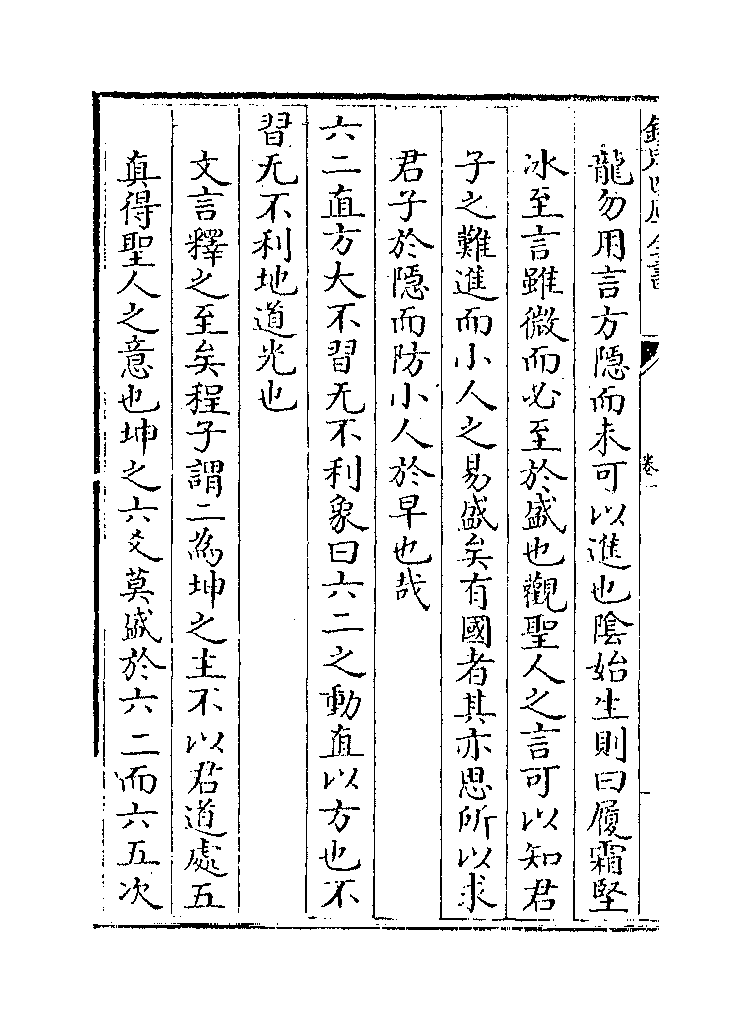 龍勿用言方隱而未可以進也陰始生則曰履霜堅
冰至言雖微而必至於盛也觀聖人之言可以知君
子之難進而小人之易盛矣有國者其亦思所以求
君子於隱而防小人於早也哉
六二直方大不習无不利象曰六二之動直以方也不
習无不利地道光也
文言釋之至矣程子謂二為坤之主不以君道處五
真得聖人之意也坤之六爻莫盛於六二而六五次
欽定四庫全書
卷一